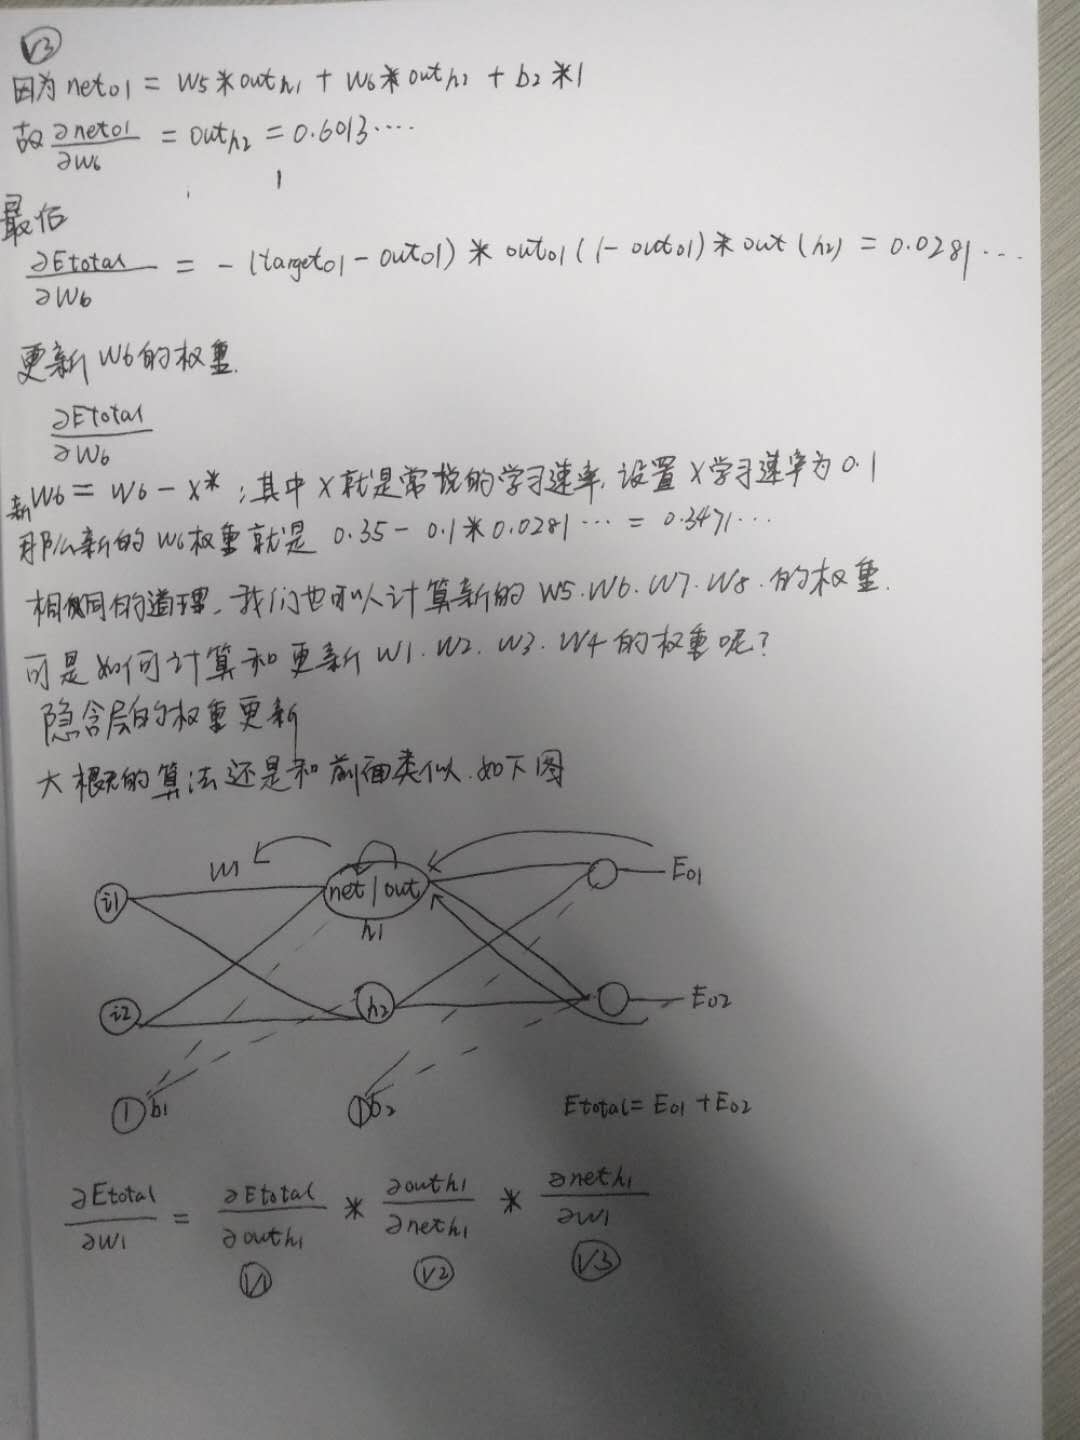 V3
因为 neto1 = W5*outh1 + W6*outh2 + b2*1
故 ∂neto1/∂W6 = outh2 = 0.6013····
最后
∂Etotal/∂W6 = -(targeto1 - outo1) * outo1(1-outo1) * out(h2) = 0.0281···
更新W6的权重.
∂Etotal/∂W6
新W6 = W6 - X* ;其中X就是常说的学习速率,设置X学习速率为0.1
那么新的W6权重就是 0.35 - 0.1*0.0281··· = 0.3471···
相同的道理,我们也可以计算新的 W5.W6.W7.W8.的权重.
可是如何计算和更新 W1.W2.W3.W4的权重呢?
隐含层的权重更新
大概的算法还是和前面类似.如下图
W1
i1
net|out
h1
Eo1
i2
h2
Eo2
1 b1
1 b2
Etotal = Eo1 + Eo2
∂Etotal/∂W1 = ∂Etotal/∂outh1 * ∂outh1/∂neth1 * ∂neth1/∂W1
V1 V2 V3